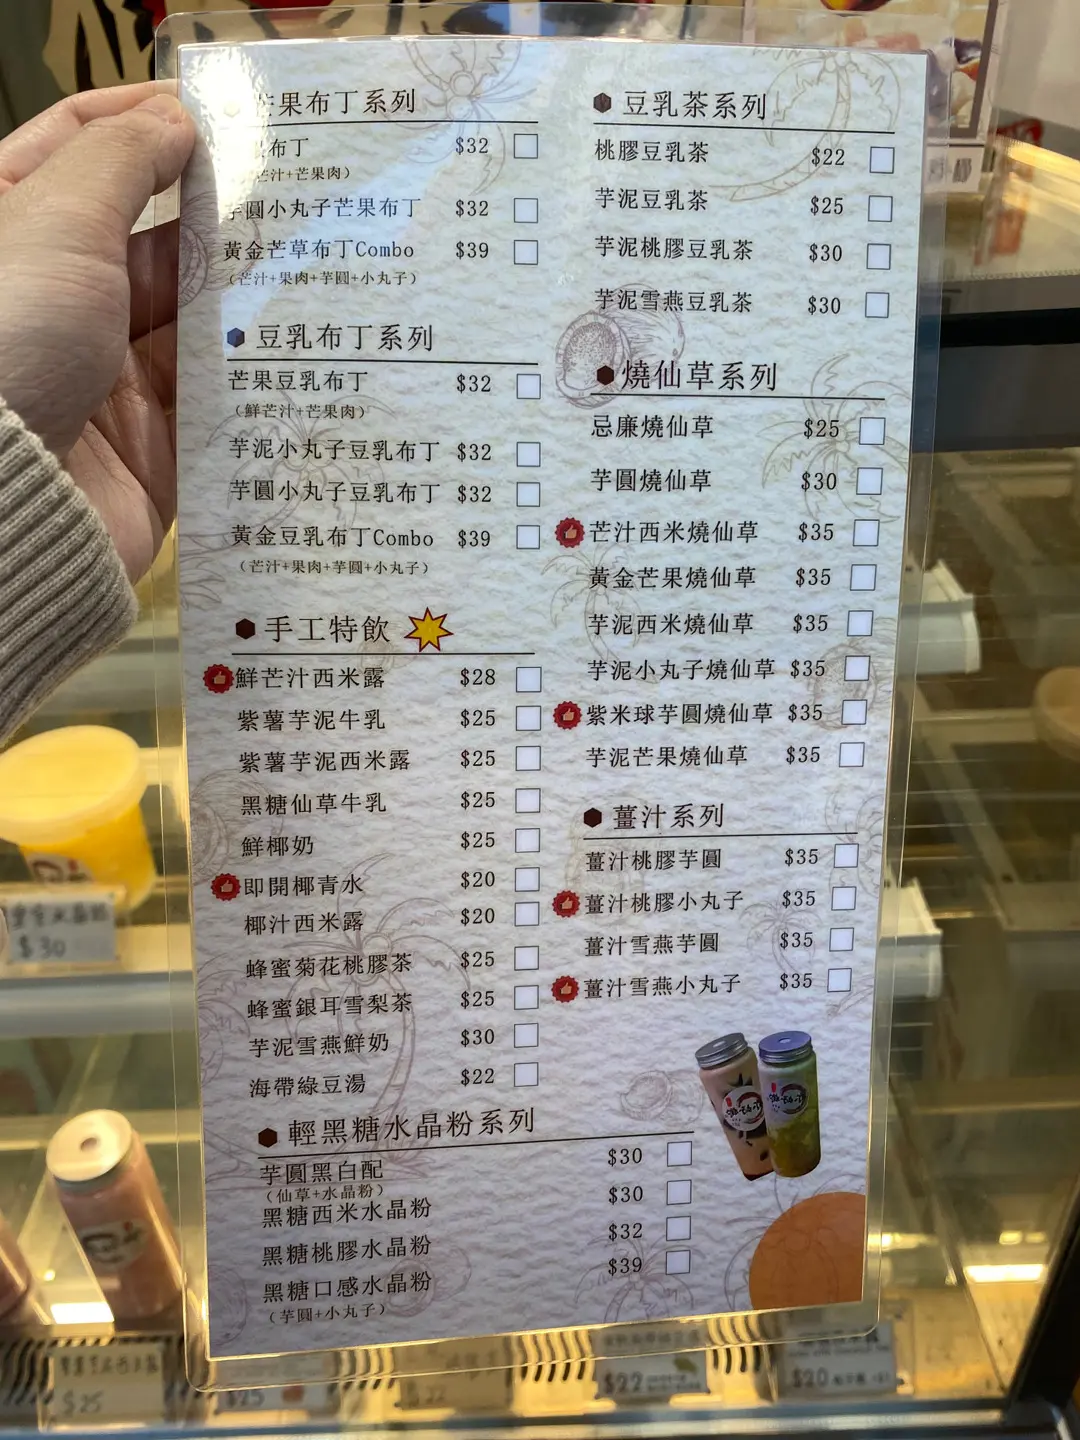 芒果布丁系列
布丁 $32
芒汁+芒果肉）
芋圓小丸子芒果布丁 $32
黃金芒草布丁Combo $39
（芒汁+果肉+芋圓+小丸子）
豆乳布丁系列
芒果豆乳布丁 $32
（鮮芒汁+芒果肉）
芋泥小丸子豆乳布丁 $32
芋圓小丸子豆乳布丁 $32
黃金豆乳布丁Combo $39
（芒汁+果肉+芋圓+小丸子）
手工特飲
鮮芒汁西米露 $28
紫薯芋泥牛乳 $25
紫薯芋泥西米露 $25
黑糖仙草牛乳 $25
鮮椰奶 $25
即開椰青水 $20
椰汁西米露 $20
蜂蜜菊花桃膠茶 $25
蜂蜜銀耳雪梨茶 $25
芋泥雪燕鮮奶 $30
海帶綠豆湯 $22
輕黑糖水晶粉系列
芋圓黑白配 $30
（仙草+水晶粉）
黑糖西米水晶粉 $30
黑糖桃膠水晶粉 $32
黑糖口感水晶粉 $39
（芋圓+小丸子）
豆乳茶系列
桃膠豆乳茶 $22
芋泥豆乳茶 $25
芋泥桃膠豆乳茶 $30
芋泥雪燕豆乳茶 $30
燒仙草系列
忌廉燒仙草 $25
芋圓燒仙草 $30
芒汁西米燒仙草 $35
黃金芒果燒仙草 $35
芋泥西米燒仙草 $35
芋泥小丸子燒仙草 $35
紫米球芋圓燒仙草 $35
芋泥芒果燒仙草 $35
薑汁系列
薑汁桃膠芋圓 $35
薑汁桃膠小丸子 $35
薑汁雪燕芋圓 $35
薑汁雪燕小丸子 $35
$30
$25
$25
$22
$22
$20